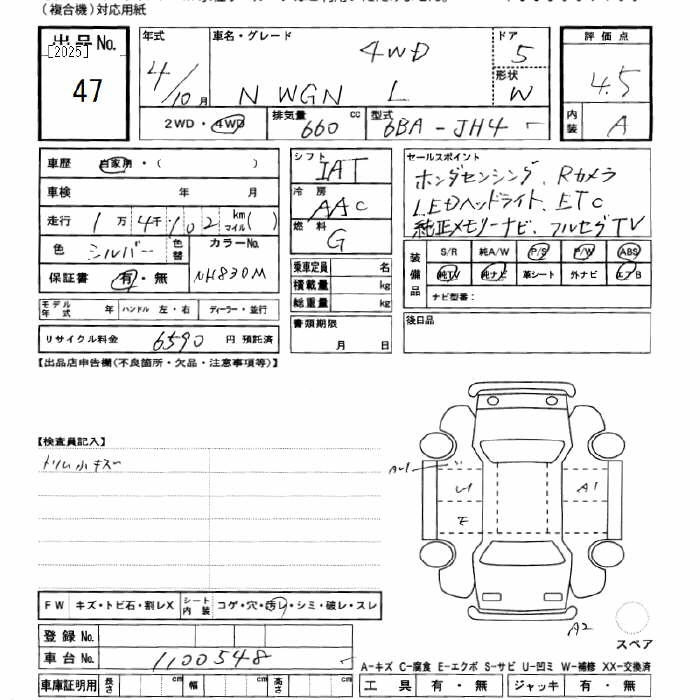 (複合機)対応用紙
出品No.
[2025]
47
年式
4/10月
車名・グレード
4WD
N WGN L
ドア
5
形状
W
評価点
4.5
内装
A
2WD・4WD
排気量 660 cc
型式 6BA-JH4
車歴 自家用・( )
車検 年 月
走行 1万4千102 km マイル( )
色 シルバー 色替
カラーNo. NH830M
保証書 有・無
モデル年式 年 ハンドル 左・右 ディーラー・並行
リサイクル料金 6590 円 預託済
シフト IAT
冷房 AAC
燃料 G
乗車定員 名
積載量 kg
総重量 kg
書類期限
月 日
セールスポイント
ホンダセンシング、Rカメラ
LEDヘッドライト、ETC
純正メモリーナビ、フルセグTV
装備品
S/R 純A/W P/S P/W ABS
純TV 純ナビ 革シート 外ナビ エアB
ナビ型番:
後日品
【出品店申告欄(不良箇所・欠品・注意事項等)】
【検査員記入】
トリム小キズ
A1
U1
A1
E
A2
スペア
FW キズ・トビ石・割レX
シート内装 コゲ・穴・汚レ・シミ・破レ・スレ
登録No.
車台No. 1100548
車庫証明用 長さ cm 幅 cm 高さ cm
A-キズ C-腐食 E-エクボ S-サビ U-凹ミ W-補修 XX-交換済
工具 有・無 ジャッキ 有・無